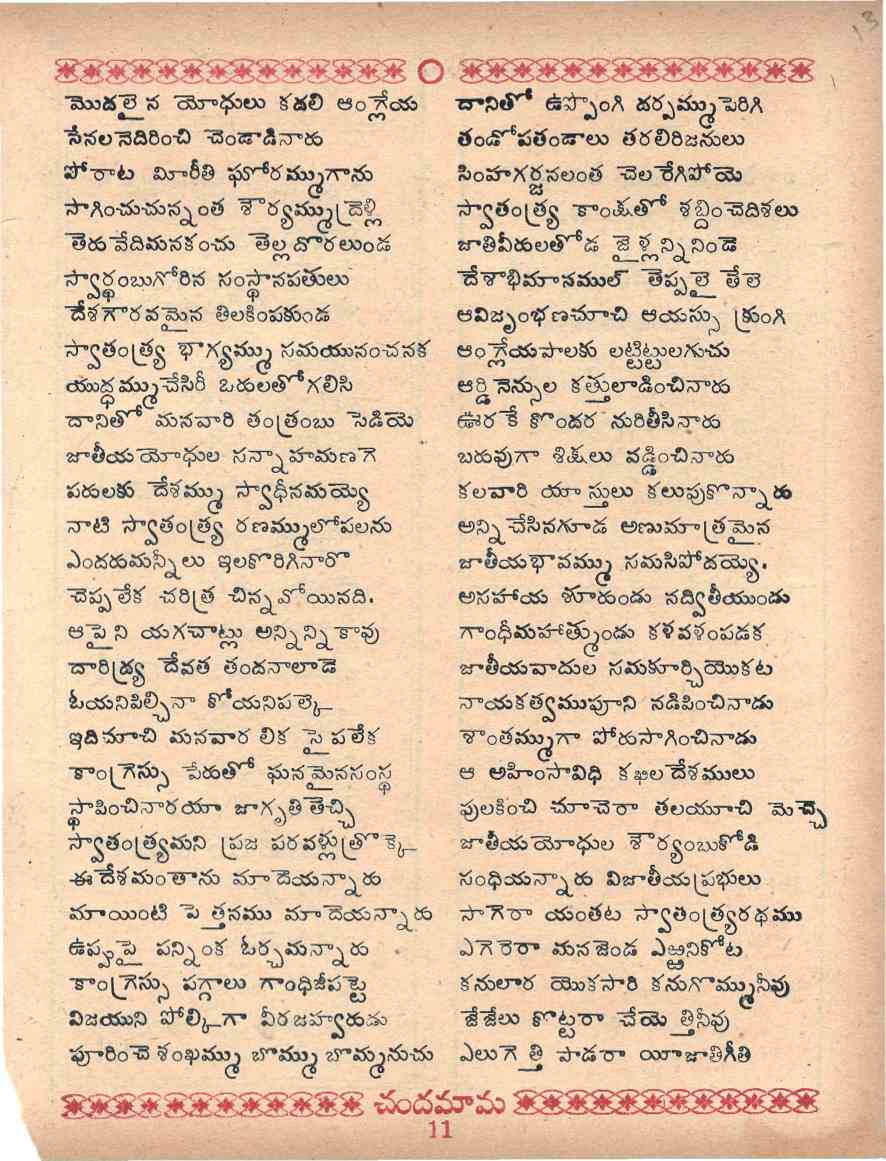 13
మొదలైన యోధులు కదలి ఆంగ్లేయ
సేనల నెదిరించి చెండాడినారు
పోరాట మీరీతి ఘోరమ్ముగాను
సాగించుచున్నంత శౌర్యమ్ము ద్రెళ్లి
తెరువేదిమనకంచు తెల్లదొరలుండ
స్వార్థంబుగోరిన సంస్థానపతులు
దేశగౌరవమైన తిలకింపకుండ
స్వాతంత్ర్య భాగ్యమ్ము సమయునంచనక
యుద్ధమ్ముచేసిరీ ఒరులతోగలిసి
దానితో మనవారి తంత్రంబు సెడియె
జాతీయయోధుల సన్నాహమణగె
పరులకు దేశమ్ము స్వాధీనమయ్యె
నాటి స్వాతంత్ర్య రణమ్ములోపలను
ఎందరుమన్నీలు ఇలకొరిగినారొ
చెప్పలేక చరిత్ర చిన్నవోయినది.
ఆపైని యగచాట్లు అన్నిన్ని కావు
దారిద్ర్య దేవత తందనాలాడె
ఓయనిపిల్చినా కోయనిపల్కె
ఇదిచూచి మనవార లిక సైపలేక
కాంగ్రెస్సు పేరుతో ఘనమైనసంస్థ
స్థాపించినారయా జాగృతి తెచ్చి
స్వాతంత్ర్యమని ప్రజ పరవళ్లుత్రొక్కె
ఈదేశమంతాను మాదెయన్నారు
మాయింటి పెత్తనము మాదెయన్నారు
ఉప్పుపై పన్నింక ఓర్చమన్నారు
కాంగ్రెస్సు పగ్గాలు గాంధిజీపట్టె
విజయుని పోల్కిగా వీరజవ్హారుడు
పూరించె శంఖమ్ము బొమ్ము బొమ్మనుచు
దానితో ఉప్పొంగి దర్పమ్ము పెరిగి
తండోపతండాలు తరలిరిజనులు
సింహగర్జనలంత చెలరేగిపోయె
స్వాతంత్ర్య కాంక్షతో శబ్దించెదిశలు
జాతివీరులతోడ జైళ్లన్నినిండె
దేశాభిమానముల్ తెప్పలై తేలె
ఆవిజృంభణచూచి ఆయస్సు క్రుంగి
ఆంగ్లేయపాలకు లట్టిట్టులగుచు
ఆర్డినెన్సుల కత్తులాడించినారు
ఊరకే కొందర నురితీసినారు
బరువుగా శిక్షలు వడ్డించినారు
కలవారి యాస్తులు కలుపుకొన్నారు
అన్నిచేసినగూడ అణుమాత్రమైన
జాతీయభావమ్ము సమసిపోదయ్యె.
అసహాయ శూరుండు నద్వితీయుండు
గాంధీమహాత్ముండు కళవళంపడక
జాతీయవాదుల సమకూర్చియొకట
నాయకత్వముపూని నడిపించినాడు
శాంతమ్ముగా పోరుసాగించినాడు
ఆ అహింసావిధి కఖిలదేశములు
పులకించి చూచెరా తలయూచి మెచ్చె
జాతీయయోధుల శౌర్యంబుకోడి
సంధియన్నారు విజాతీయప్రభులు
సాగెరా యంతట స్వాతంత్ర్యరథము
ఎగెరెరా మనజెండ ఎఱ్ఱనికోట
కనులార యొకసారి కనుగొమ్మునీవు
జేజేలు కొట్టరా చేయెత్తినీవు
ఎలుగెత్తి పాడరా యీజాతిగీతి
చందమామ
11